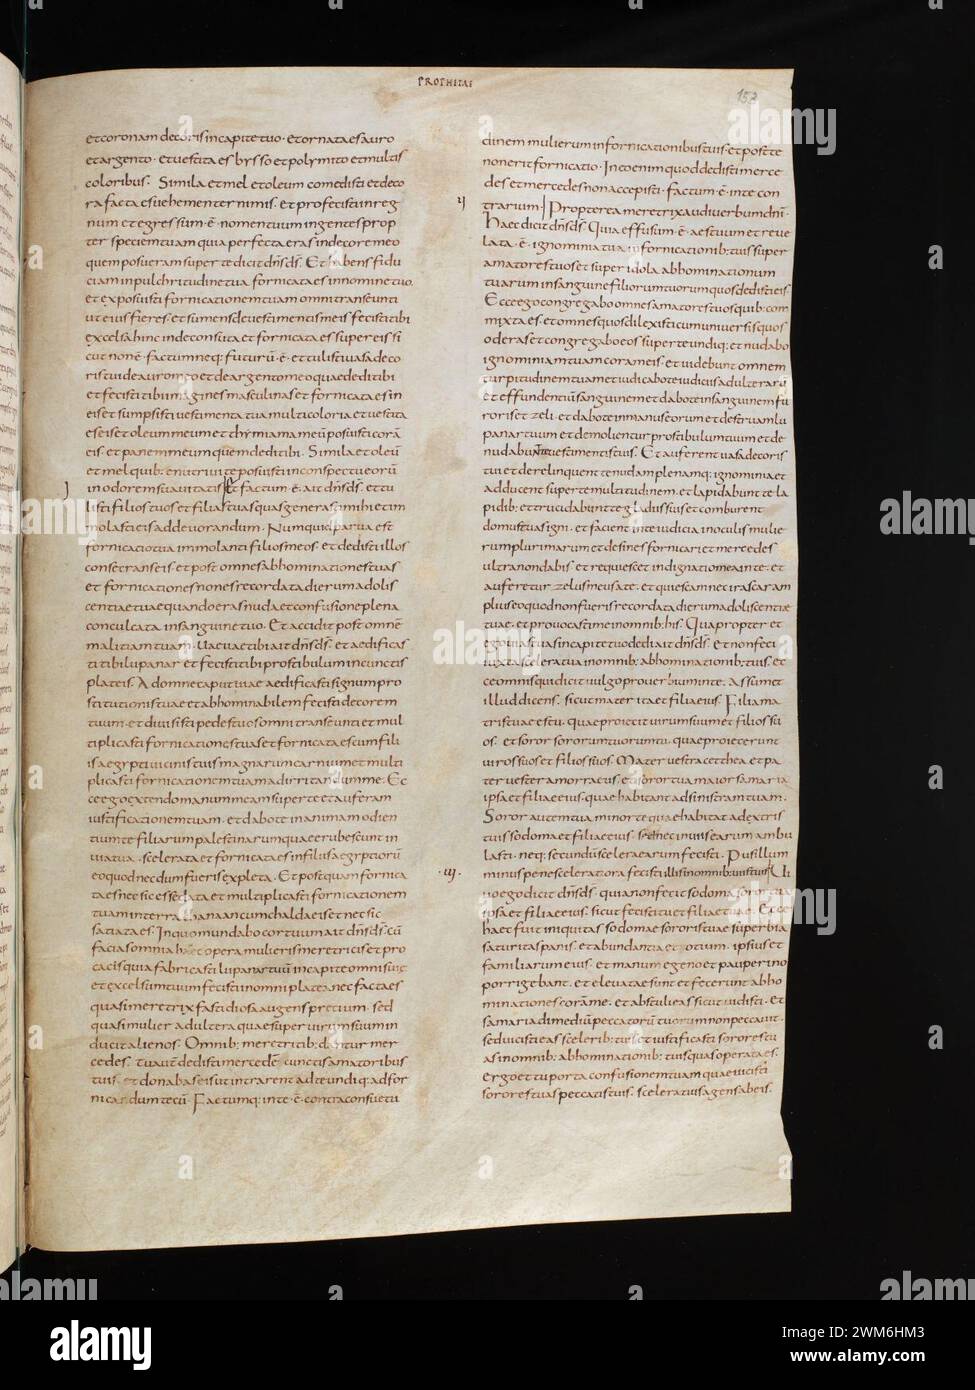 PROPHETAE
157
et coronam decoris in capite tuo · et ornata es auro
et argento · et vestita es bysso et polymito et multis
coloribus · Simila et mel et oleum comedisti et deco
ra facta es vehementer nimis · et profecisti in reg
num et egressum · ē · nomen tuum in gentes prop
ter speciem tuam quia perfecta eras in decore meo
quem posueram super te dicit dn̄s ds̄ · Et habens fidu
ciam in pulchritudine tua fornicata es in nomine tuo
et exposuisti fornicationem tuam omni transeunti
ut eius fieres · et sumens de vestimentis meis fecisti tibi
excelsa hinc inde consuta et fornicata es super eis si
cut non ē · factum neq; futurū · ē · et tulisti vasa deco
ris tui de auro meo et de argento meo quae dedi tibi
et fecisti tibi imagines masculinas et fornicata es in
eis et sumpsisti vestimenta tua multicoloria et vestita
es eis et oleum meum et thymiama meū posuisti corā
eis et panem meum quem dedi tibi · Simila et oleū
et mel quib; enutrivi te posuisti in conspectu eorū
in odorem suavitatis Et factum · ē · ait dn̄s ds̄ · et tu
listi filios tuos et filias tuas quas generasti mihi et im
molasti eis ad devorandum · Numquid parva est
fornicatio tua immolanti filios meos · et dedisti illos
consecrans eis et post omnes abhominationes tuas
et fornicationes non es recordata dierum adolis
centiae tuae quando eras nuda et confusione plena
conculcata in sanguine tuo · Et accidit post omnē
malitiam tuam · Vae vae tibi ait dn̄s ds̄ · et aedificas
ti tibi lupanar et fecisti tibi prostibulum in cunctis
plateis · Ad omne caput viae aedificasti signum pro
stitutionis tuae et abhominabilem fecisti decorem
tuum · et divisisti pedes tuos omni transeunti et mul
tiplicasti fornicationes tuas et fornicata es cum fili
is aegypti vicinis tuis magnarum carnium et multi
plicasti fornicationem tuam ad irritandum me · Ec
ce ego extendo manum meam super te et auferam
iustificationem tuam · et dabo te in animam odien
tium te filiarum palestinarum quae erubescunt in
via tua · scelerata et fornicata es in filiis aegyptiorū
eo quod necdum fueris expleta · Et postquam fornica
ta es nec sic es sedata et multiplicasti fornicationem
tuam in terra chanaan cum chaldaeis et nec sic
satiata es · In quo mundabo cor tuum ait dn̄s ds̄ · cū
facias omnia haec opera mulieris meretricis et pro
cacis quia fabricasti lupanar tuū in capite omnis viae
et excelsum tuum fecisti in omni platea nec facta es
quasi meretrix fastidio sa augens pretium · sed
quasi mulier adultera quae super virum suum in
ducit alienos · Omnib; meretricib; dantur mer
cedes · tu autē dedisti mercedes cunctis amatoribus
tuis · et dona bas eis ut intrarent ad te undiq; ad for
nicandum tecū · Factumq; in te · ē · contra consuetu
dinem mulierum in fornicationibus tuis · et post te
non erit fornicatio · In eo enim quod dedisti merce
des et mercedes non accepisti · factum · ē · in te con
ij
trarium Propterea meretrix audi verbum dn̄i ·
Haec dicit dn̄s ds̄ · Quia effusum · ē · aes tuum et reve
lata · ē · ignominia tua in fornicationib; tuis super
amatores tuos et super idola abhominationum
tuarum in sanguine filiorum tuorum quos dedisti eis
Ecce ego congregabo omnes amatores tuos quib; com
mixta es · et omnes quos dilexisti cum universis quos
oderas et congregabo eos super te undiq; et nudabo
ignominiam tuam coram eis · et videbunt omnem
turpitudinem tuam et iudicabo te iudiciis adulterarū
et effundentiū sanguinem et dabo te in sanguinem fu
roris et zeli · et dabo te in manus eorum et destruent lu
panar tuum et demolientur prostibulum tuum et de
nudabunt te vestimentis tuis · Et auferent vasa decoris
tui et derelinquent te nudam plenamq; ignominia et
adducent super te multitudinem · et lapidabunt te la
pidib; et trucidabunt te gladiis suis et comburent
domus tuas igni · et facient in te iudicia in oculis mulie
rum plurimarum et desines fornicari et mercedes
ultra non dabis · et requiescet indignatio mea in te · et
auferetur zelus meus a te · et quiescam nec irascar am
plius eo quod non fueris recordata dierum adoliscentiae
tuae · et provocasti me in omnib; his · Quapropter et
ego vias tuas in capite tuo dedi ait dn̄s ds̄ · Et non feci
iuxta scelera tua in omnib; abhominationib; tuis · ec
ce omnis qui dicit vulgo proverbium in te · Assumet
illud dicens · sicut mater ita et filia eius · Filia ma
tris tuae es tu · quae proiecit virum suum et filios su
os · et soror sororum tuarum tu · quae proiecerunt
viros suos et filios suos · Mater vestra cetthea et pa
ter vester amorraeus · et soror tua maior samaria
ipsa et filiae eius · quae habitant ad sinistram tuam ·
Soror autem tua minor te quae habitat a dextris
tuis sodoma et filiae eius · sed nec in viis earum ambu
lasti · neq; secundū scelera earum fecisti · Pusillum
iij
minus pene sceleratiora fecisti illis in omnib; viis tuis Vi
vo ego dicit dn̄s ds̄ · quia non fecit sodoma soror tua
ipsa et filiae eius · sicut fecisti tu et filiae tuae · Ecce
haec fuit iniquitas sodomae sororis tuae superbia
saturitas panis · et abundantia et otium · ipsius et
filiarum eius · et manum egeno et pauperi no
porrigebant · et elevatae sunt et fecerunt abho
minationes corā me · et abstuli eas sicut vidisti · Et
samaria dimediū peccatorū tuorum non peccavit ·
sed vicisti eas scelerib; tuis et iustificasti sorores tu
as in omnib; abhominationib; tuis quas operata es ·
Ergo et tu porta confusionem tuam quae vicisti
sorores tuas peccatis tuis · sceleratius agens ab eis ·
alamy
Image ID: 2WM6HM3
www.alamy.com